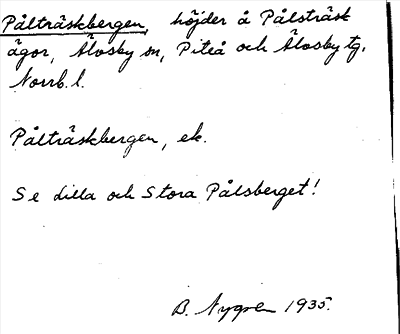 Pålträskbergen, höjder å Pålsträsk
ägor, Älvsby sn, Piteå och Älvsby tg.
Norrb. l.
Pålträskbergen, ek.
Se Lilla och Stora Pålsberget!
B. Nygren 1935.